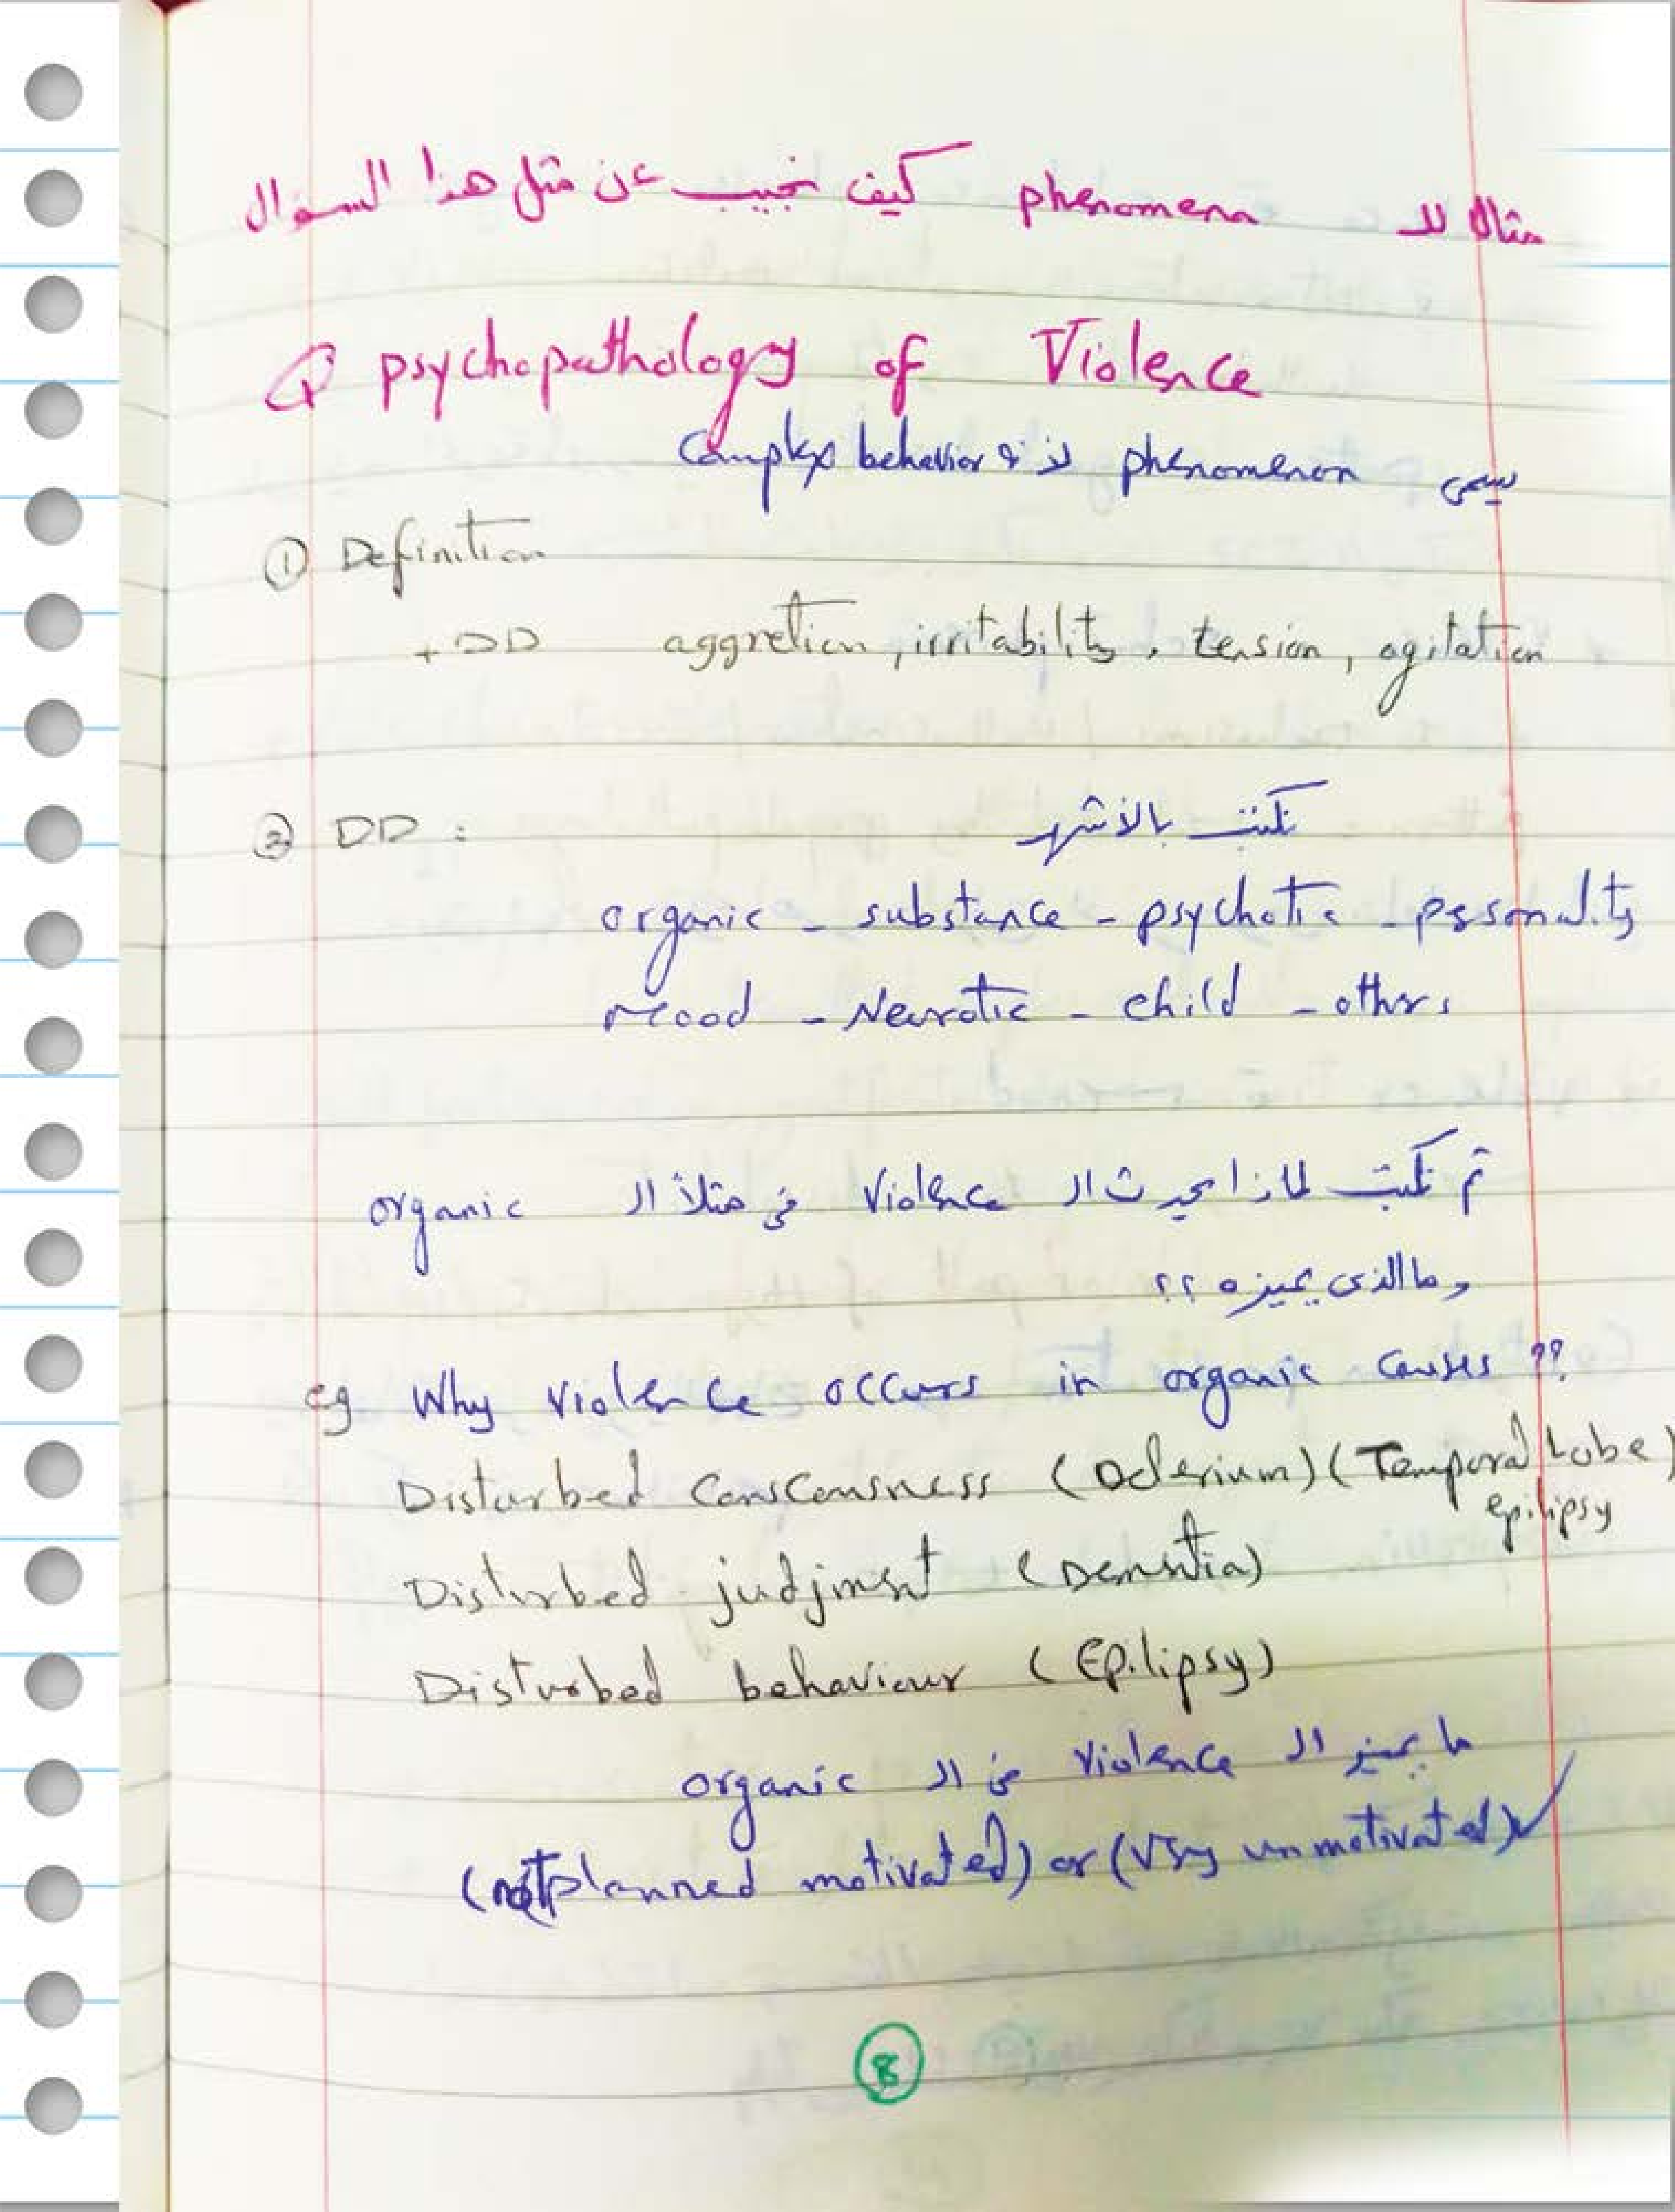 مثال للـ phenomena كيف نجيب عن مثل هذا السؤال
Q psychopathology of Violence
يسمى phenomenon لأنه Complex behavior
① Definition
+ DD aggretion, irritability, tension, agitation
② DD : نكتب بالأشهر
organic - substance - psychotic - personality
Mood - Neurotic - child - others
ثم نكتب لماذا يحدث الـ Violence في مثلاً الـ organic
وما الذى يميزه ؟؟
eg Why violence occurs in organic causes ??
Disturbed Conscousness (Delerium) (Temporal Lobe epilipsy)
Disturbed judjment (Dementia)
Disturbed behaviour (Epilipsy)
ما يميز الـ Violence في الـ organic
(not planned motivated) or (Very unmotivated)
8